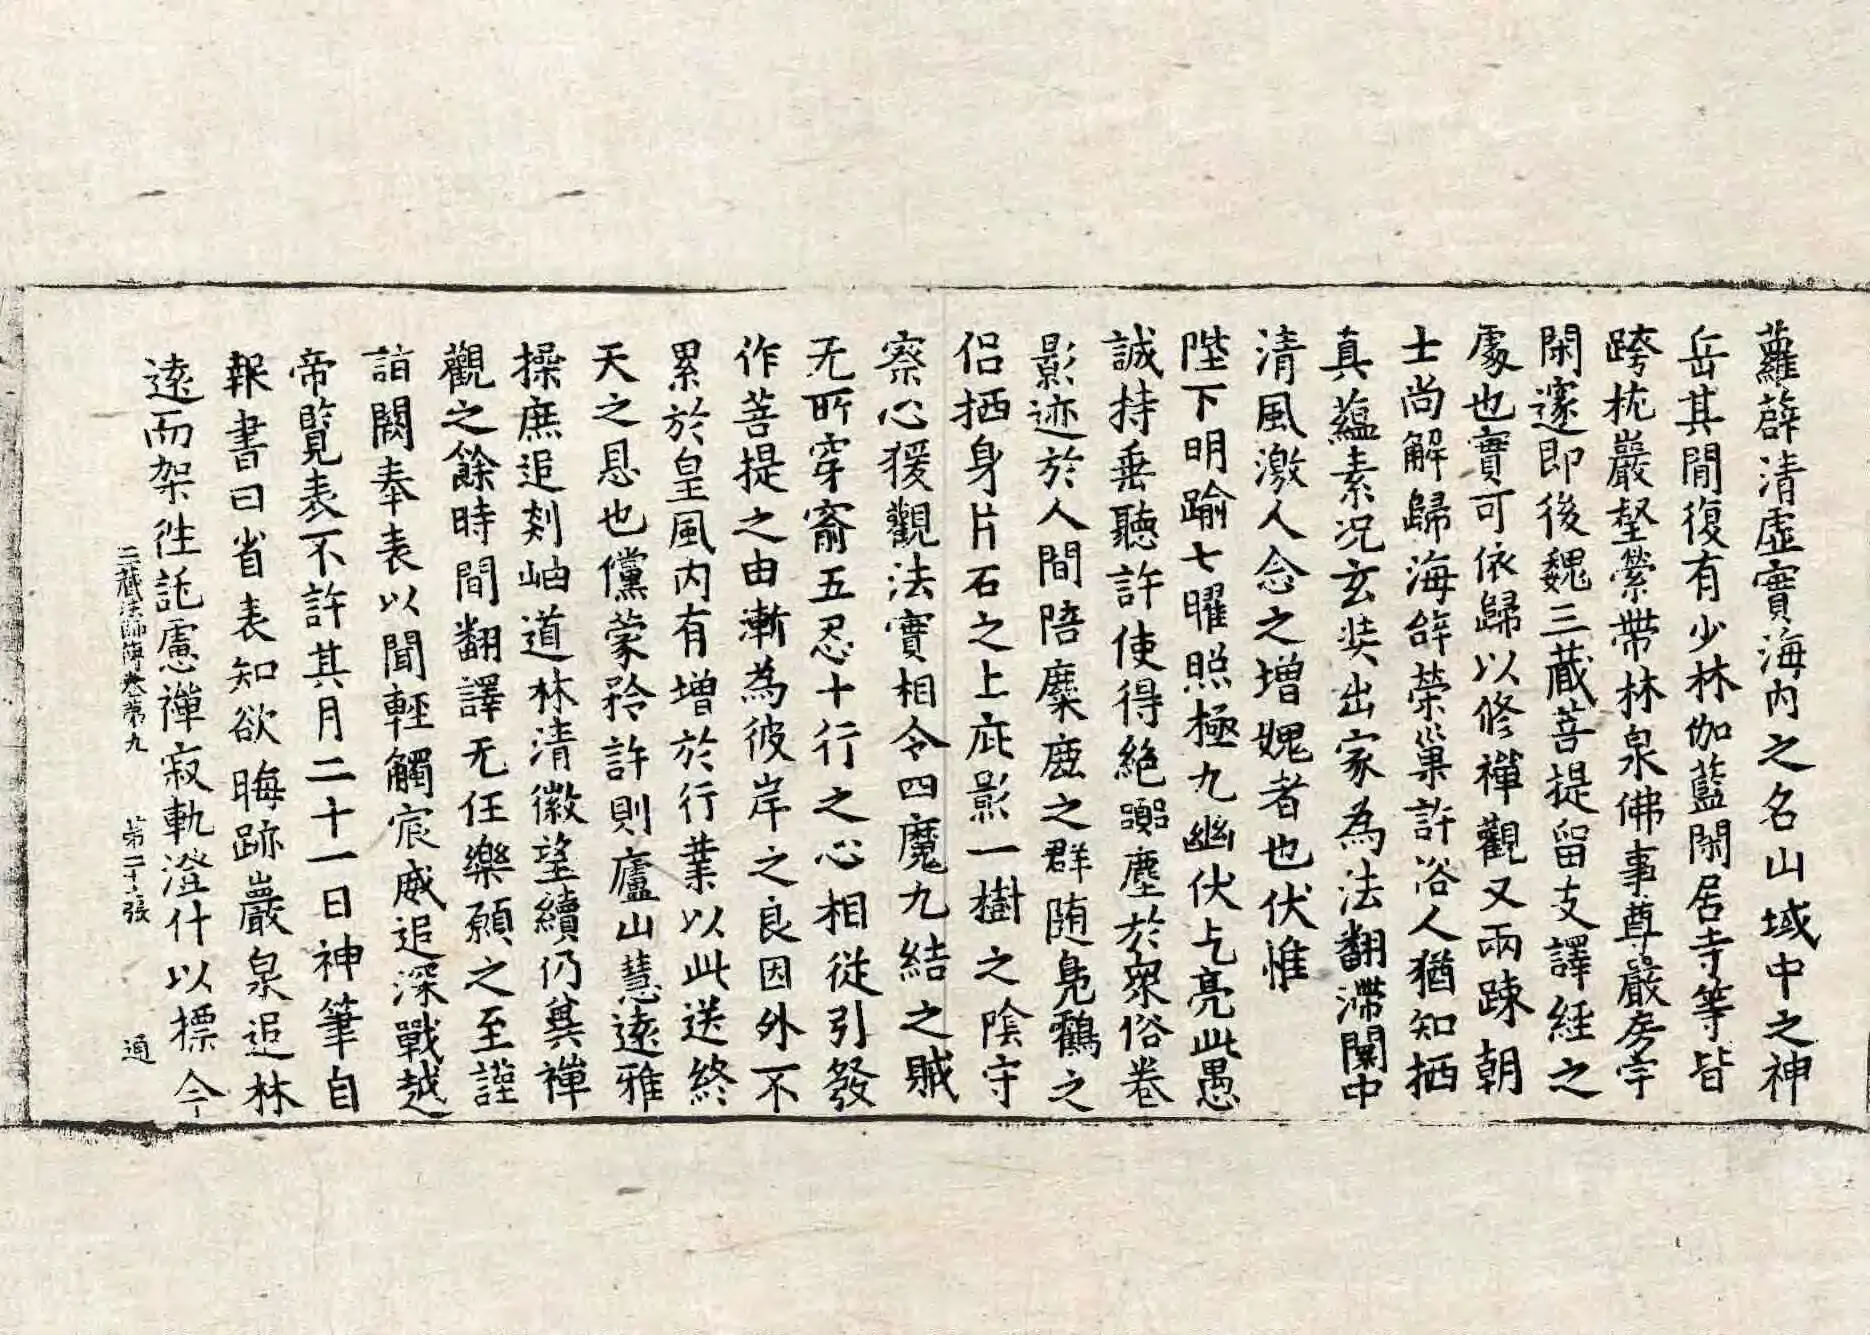 蘿薜清虛實海內之名山域中之神
岳其閒復有少林伽藍閑居寺等皆
跨枕巖壑縈帶林泉佛事尊嚴房宇
閑邃即後魏三藏菩提留支譯經之
處也實可依歸以修禪觀又兩踈朝
士尚解歸海辝榮巢許俗人猶知栖
真蘊素況玄奘出家為法翻滯闤中
清風激人念之增媿者也伏惟
陛下明踰七曜照極九幽伏乞亮此愚
誠持垂聽許使得絶嚻塵於衆俗卷
影迹於人間陪麋鹿之群随鳧鶴之
侶栖身片石之上庇影一樹之陰守
察心猨觀法實相令四魔九結之賊
无所穿窬五忍十行之心相從引發
作菩提之由漸為彼岸之良因外不
累於皇風內有增於行業以此送終
天之恩也儻蒙矜許則廬山慧遠雅
操庶追剡岫道林清徽望續仍兾禪
觀之餘時間翻譯无任樂願之至謹
詣闕奉表以聞輕觸宸威追深戰越
帝覽表不許其月二十一日神筆自
報書曰省表知欲晦跡巖泉追林
遠而架往託慮禪寂軌澄什以標今
三藏法師傳卷第九 第二十張 通